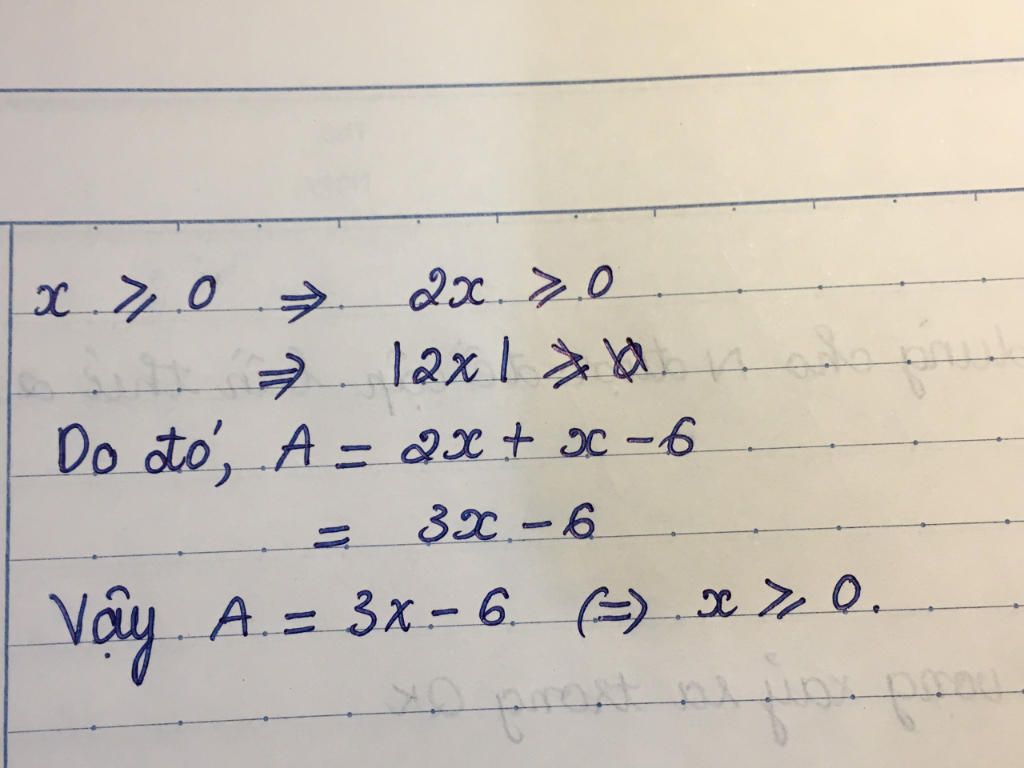 x ⩾ 0 ⇒ 2x ⩾ 0
⇒ |2x|
Do đó, A = 2x + x - 6
= 3x - 6
Vậy A = 3x - 6 (=) x ⩾ 0.